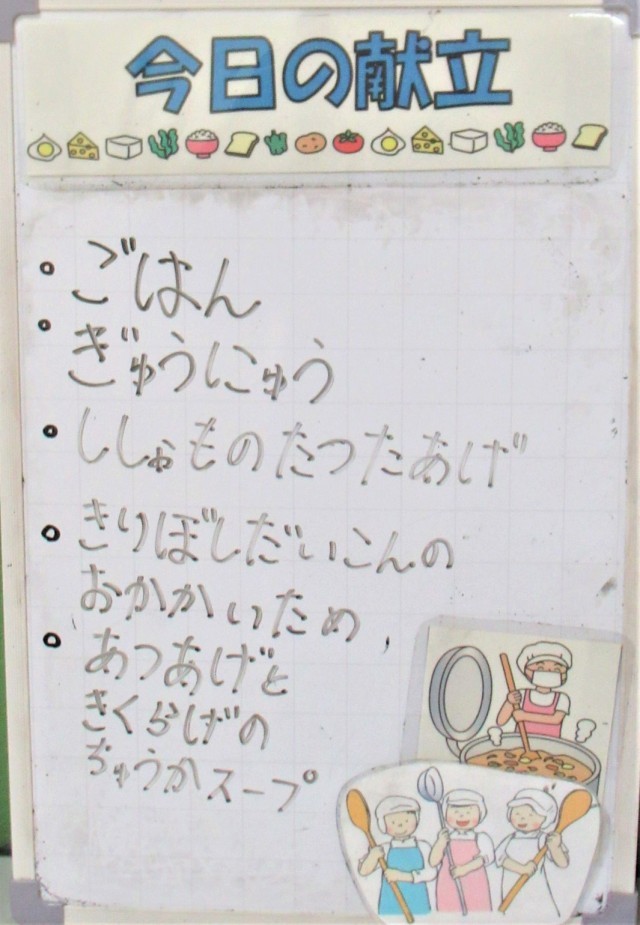 今日の献立
ごはん
ぎゅうにゅう
ししゃものたつたあげ
きりぼしだいこんの
おかかいため
あつあげと
きくらげの
ちゅうかスープ